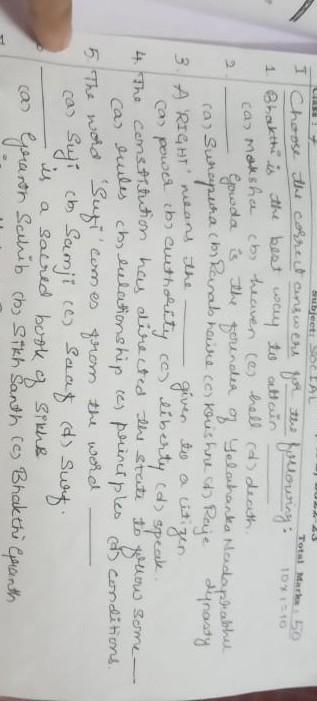 Class: 7 Subject: SOCIAL 2022-23
Total Marks: 50
I Choose the correct answers for the following: 10x1=10
1. Bhakthi is the best way to attain ______
(a) moksha (b) heaven (c) hell (d) death.
2. ______ Gowda is the founder of Yelahanka Nadaprabhu dynasty
(a) Sura (b) (c) Krishna (d) Raje
3. A 'RIGHT' means the ______ given to a citizen
(a) power (b) authority (c) liberty (d) speak.
4. The constitution has directed the state to follow some ______
(a) rules (b) relationship (c) principles (d) conditions.
5. The word 'Sufi' comes from the word ______
(a) Sufi (b) Samji (c) Saaf (d) Suf.
______ is a sacred book of Sikhs
(a) Granth Sahib (b) Sikh Santh (c) Bhakthi Granth